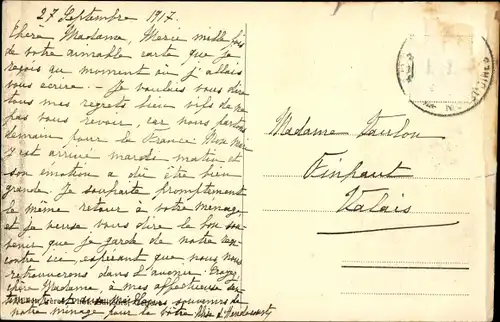 27 Septembre 1917.
Chère Madame, Merci mille fois
de votre aimable carte que je
reçois au moment où j'allais
vous écrire - Je voulais vous dire
tous mes regrets bien vifs de ne
pas vous revoir, car nous partons
demain pour la France Mon
est arrivé mardi matin et
son émotion a dû être bien
grande. Je souhaite promptement
le même retour à votre ménage,
et je veux vous dire le bon sou-
venir que je garde de notre ren-
contre ici, espérant que nous nous
retrouverons dans l'avenir. Croyez,
chère Madame, à mes affectueux sen-
timents et aux meilleurs souvenirs de
notre ménage pour le vôtre
Madame
Finhaut
Valais